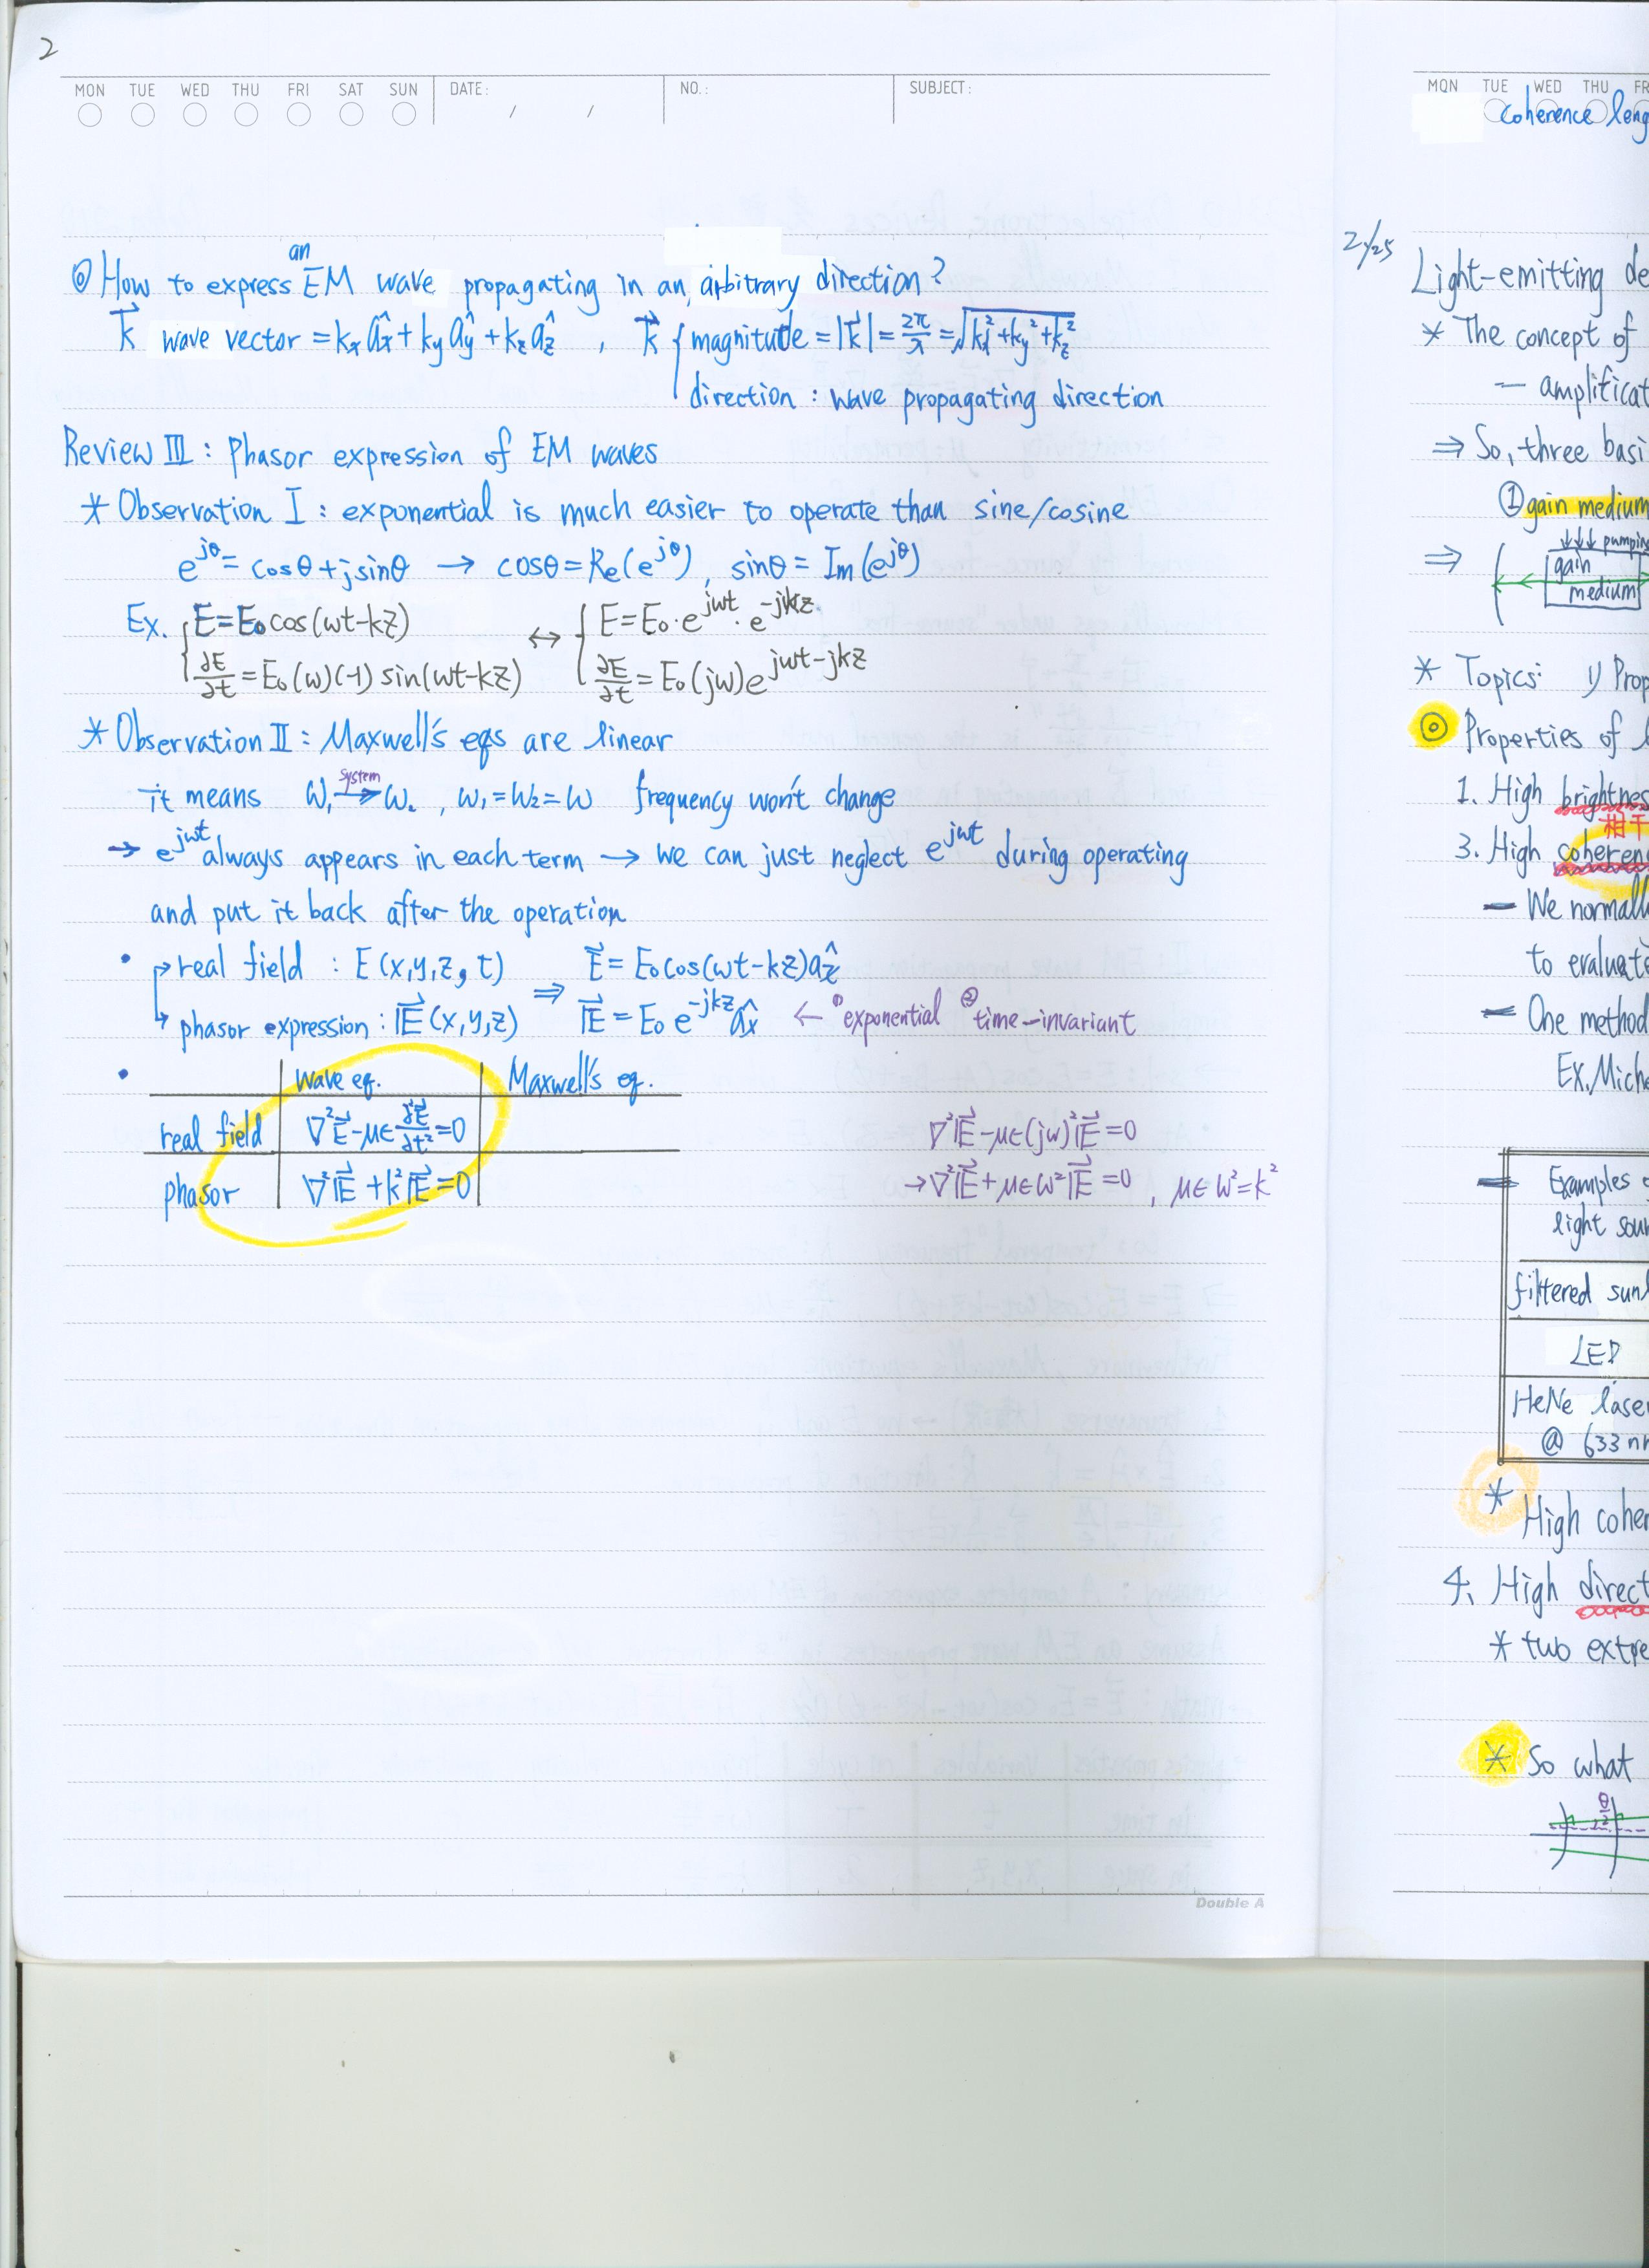 2
MON TUE WED THU FRI SAT SUN DATE: / / NO.: SUBJECT:
◎ How to express an EM wave propagating in an arbitrary direction?
k⃗ wave vector = kₓ âₓ + k_y â_y + k_z â_z , k⃗ { magnitude = |k⃗| = 2π/λ = √(kₓ² + k_y² + k_z²)
direction : wave propagating direction
Review III : Phasor expression of EM waves
* Observation I : exponential is much easier to operate than sine/cosine
e^{jθ} = cosθ + j sinθ → cosθ = Re(e^{jθ}) , sinθ = Im(e^{jθ})
Ex. { E = E₀ cos(wt-kz) ↔ { E = E₀ · e^{jwt} · e^{-jkz}
∂E/∂t = E₀ (w)(-1) sin(wt-kz) ∂E/∂t = E₀ (jw) e^{jwt-jkz}
* Observation II : Maxwell's eqs are linear
it means w₁ —System→ w₂ , w₁ = w₂ = w frequency won't change
→ e^{jwt} always appears in each term → we can just neglect e^{jwt} during operating
and put it back after the operation
• real field : E (x,y,z, t) ⇒ E⃗ = E₀ cos(wt-kz) â
↳ phasor expression : 𝔼⃗ (x,y,z) 𝔼⃗ = E₀ e^{-jkz} âₓ ← ① exponential ② time-invariant
• wave eq. Maxwell's eq.
real field ∇²E⃗ - μϵ ∂²E⃗/∂t² = 0 ∇²𝔼⃗ - μϵ(jw)²𝔼⃗ = 0
phasor ∇²𝔼⃗ + k²𝔼⃗ = 0 → ∇²𝔼⃗ + μϵ w²𝔼⃗ = 0 , μϵ w² = k²
Double A
MON TUE WED THU
coherence
2/25
Light-emitting
* The concept of
—
⇒ So, three
① gain medium
⇒ ↓↓↓
gain
medium
* Topics: 1)
◎ Properties of
1. High
相干
3. High
— We
to
— One method
Ex.
— Examples
light
filtered
LED
HeNe
@ 633
* High
4. High
* two
* So what
θ/2